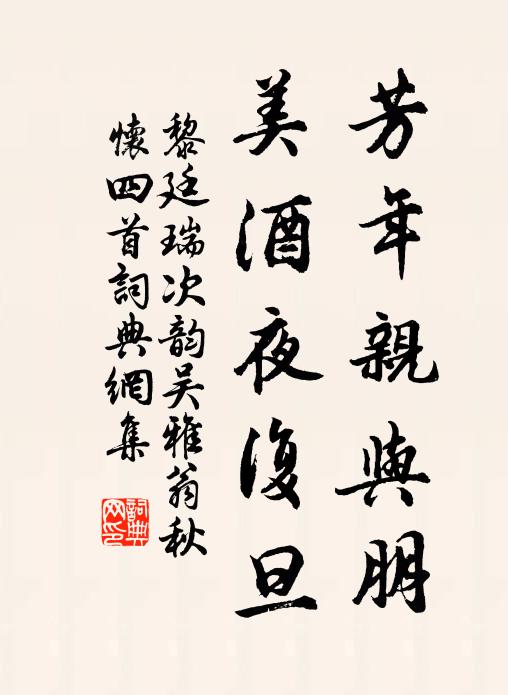 芳年親與朋
美酒夜復旦
黎廷瑞次韵吴雅翁秋
懷四首詞典網集
詞典网印